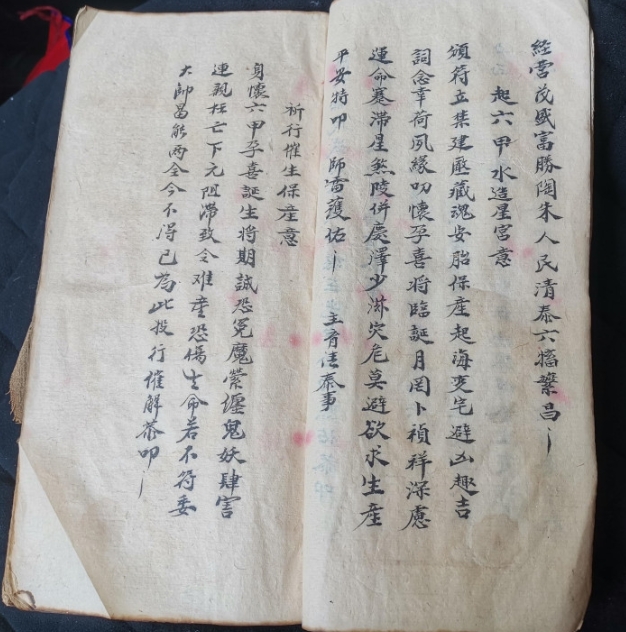 經营茂盛富勝陶朱人民清泰六畜繁昌
起六甲水造星宫意
頒符立禁建壓藏魂安胎保產起海变宅避凶趣吉
詞念幸荷夙緣叨懷孕喜將臨誕月罔卜禎祥深慮
運命蹇滯星煞陵併慶澤少淋灾危莫避欲求生產
平安特叩 師雷護佑 主者法奏事
祈行催生保產意
身懷六甲孕喜誕生將期誠恐冤魔縈纏鬼妖肆害
連親枉亡下元阻滯致令难產恐傷生命若不符委
大師曷能两全今不得已為此投行催解恭叩